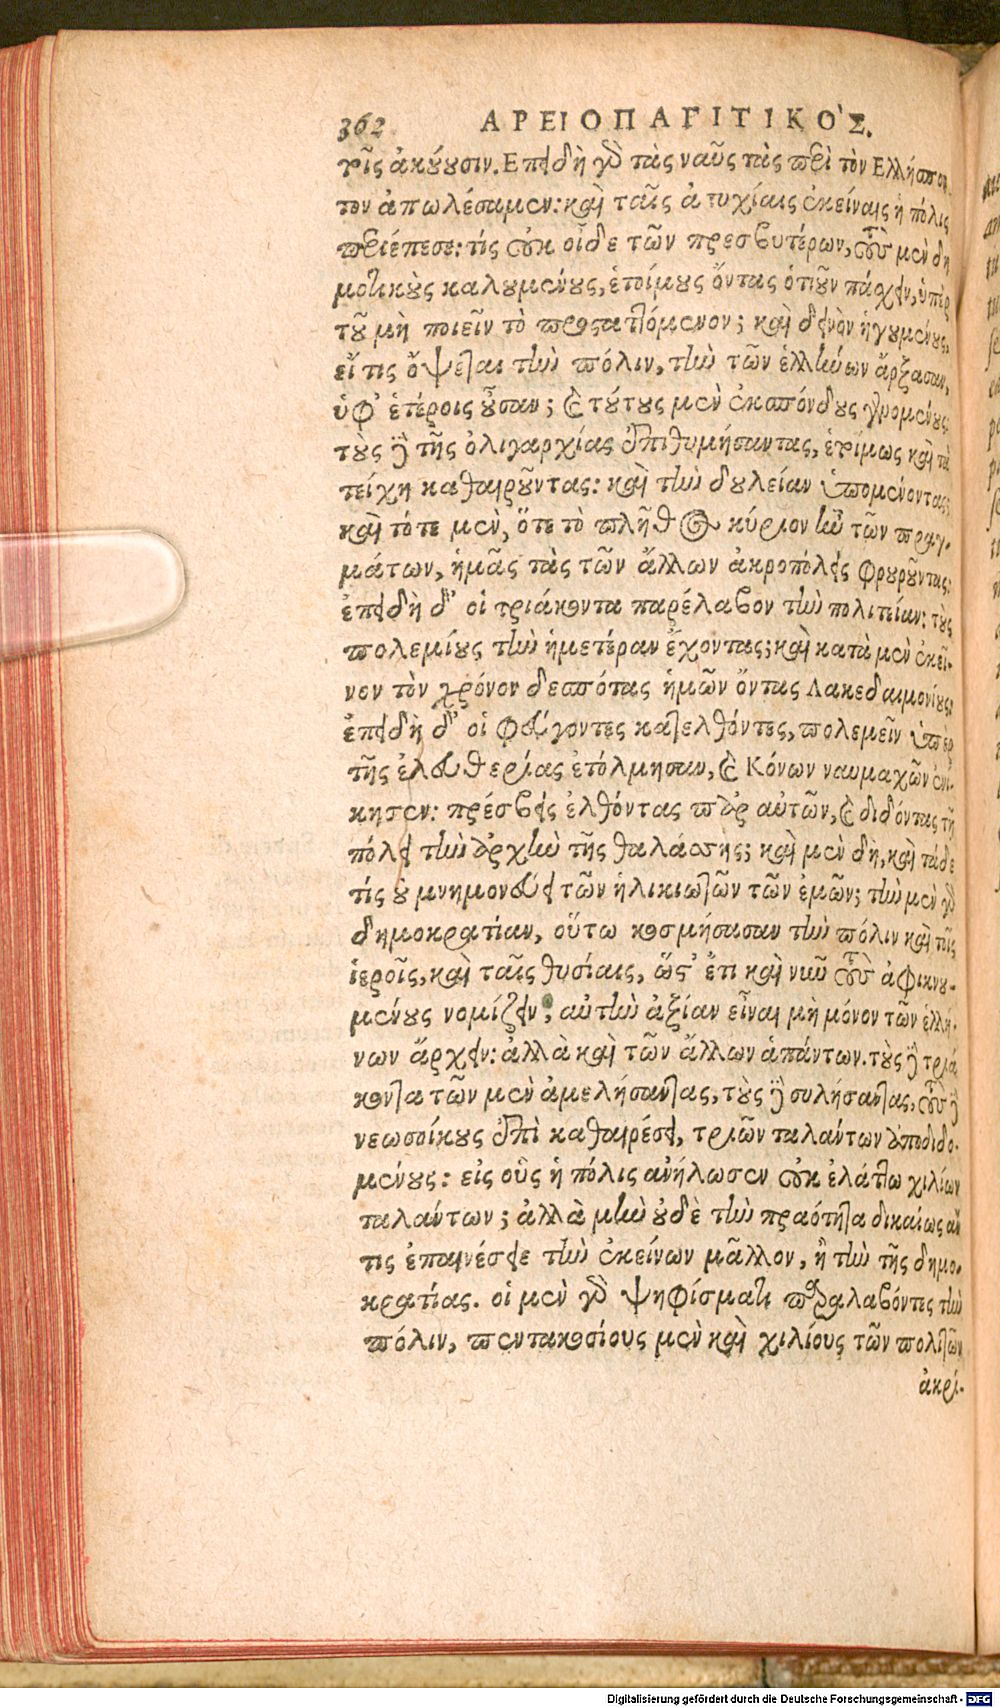 362 ΑΡΕΙΟΠΑΓΙΤΙΚΟ`Σ.
ρῖς ἀκούουσιν. Επειδὴ γὸ τὰς ναῦς τὰς περὶ τὸν Ελλήσπον
τον ἀπωλέσαμεν: καὶ ταῖς ἀτυχίαις ἐκείναις ἡ πόλις
περιέπεσε: τίς οὐκ οἶδε τῶν πρεσβυτέρων, τοὺς μὲν δη
μοτικοὺς καλουμένους, ἑτοίμους ὄντας ὁτιοῦν πάχειν, ὑπὲρ
τοῦ μὴ ποιεῖν τὸ προσταττόμενον; καὶ δεινὸν ἡγουμένους,
εἴ τις ὄψεται τὴν πόλιν, τὴν τῶν ἑλλήνων ἄρξασαν,
ὑφ' ἑτέροις οὖσαν; καὶ τούτους μὲν ἐκσπόνδους γενομένους
τοὺς δὲ τῆς ὀλιγαρχίας ἐπιθυμήσαντας, ἑτοίμως καὶ τὰ
τείχη καθαιροῦντας: καὶ τὴν δουλείαν ὑπομένοντας;
καὶ τότε μὲν, ὅτε τὸ πλῆθος κύριον ἦν τῶν πραγ-
μάτων, ἡμᾶς τὰς τῶν ἄλλων ἀκροπόλεις φρουροῦντας:
ἐπειδὴ δ' οἱ τριάκοντα παρέλαβον τὴν πολιτείαν: τοὺς
πολεμίους τὴν ἡμετέραν ἔχοντας; καὶ κατὰ μὲν ἐκεῖ-
νον τὸν χρόνον δεσπότας ἡμῶν ὄντας Λακεδαιμονίους:
ἐπειδὴ δ' οἱ φεύγοντες κατελθόντες, πολεμεῖν ὑπὲρ
τῆς ἐλευθερίας ἐτόλμησαν, καὶ Κόνων ναυμαχῶν ἐνί-
κησεν: πρέσβεις ἐλθόντας παρ αὐτῶν, καὶ διδόντας τῇ
πόλει τὴν ἀρχὴν τῆς θαλάσσης; καὶ μὲν δὴ, καὶ τάδε
τίς οὐ μνημονεύει τῶν ἡλικιωτῶν τῶν ἐμῶν; τὴν μὲν γὸ
δημοκρατίαν, οὕτω κοσμήσασαν τὴν πόλιν καὶ τοῖς
ἱεροῖς, καὶ ταῖς θυσίαις, ὥστ' ἔτι καὶ νῦν τοὺς ἀφικνου-
μένους νομίζειν, αὐτὴν ἀξίαν εἶναι μὴ μόνον τῶν ἑλλή-
νων ἄρχειν: ἀλλὰ καὶ τῶν ἄλλων ἁπάντων. τοὺς δὲ τριά
κοντα τῶν μὲν ἀμελήσαντας, τοὺς δὲ συλήσαντας, τοὺς δὲ
νεωσοίκους ἐπὶ καθαιρέσει, τριῶν ταλάντων ἀποδιδο-
μένους: εἰς οὓς ἡ πόλις ἀνήλωσεν οὐκ ἐλάττω χιλίων
ταλάντων; ἀλλὰ μὴν οὐδὲ τὴν πραότητα δικαίως ἄν
τις ἐπαινέσειε τὴν ἐκείνων μᾶλλον, ἢ τὴν τῆς δημο-
κρατίας. οἱ μὲν γὸ ψηφίσματι παραλαβόντες τὴν
πόλιν, πεντακοσίους μὲν καὶ χιλίους τῶν πολιτῶν
ἀκρί-
Digitalisierung gefördert durch die Deutsche Forschungsgemeinschaft - DFG